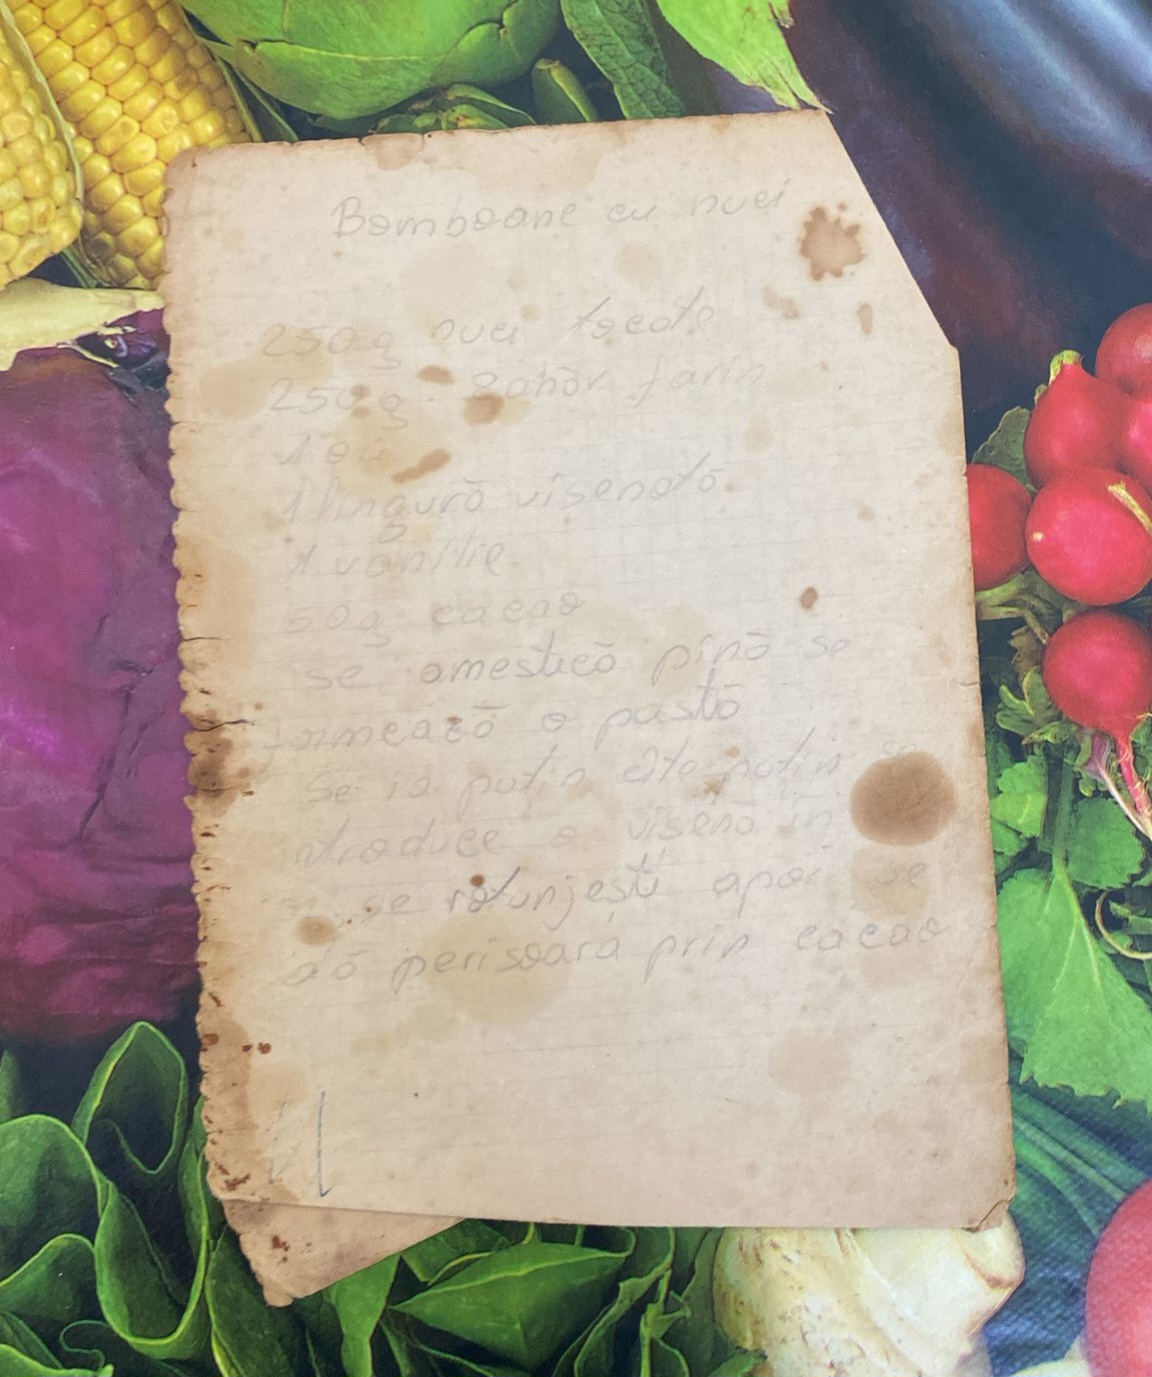 Bomboane cu nuci
250 g nuci tocate
250 g zahăr farin
1 ou
1 lingură vișinată
1 vanilie
50 g cacao
se amestică pînă se
formează o pastă
Se ia puțin cîte puțin se
introduce o vișină în
se rotunjești apoi se
dă perișoara prin cacao